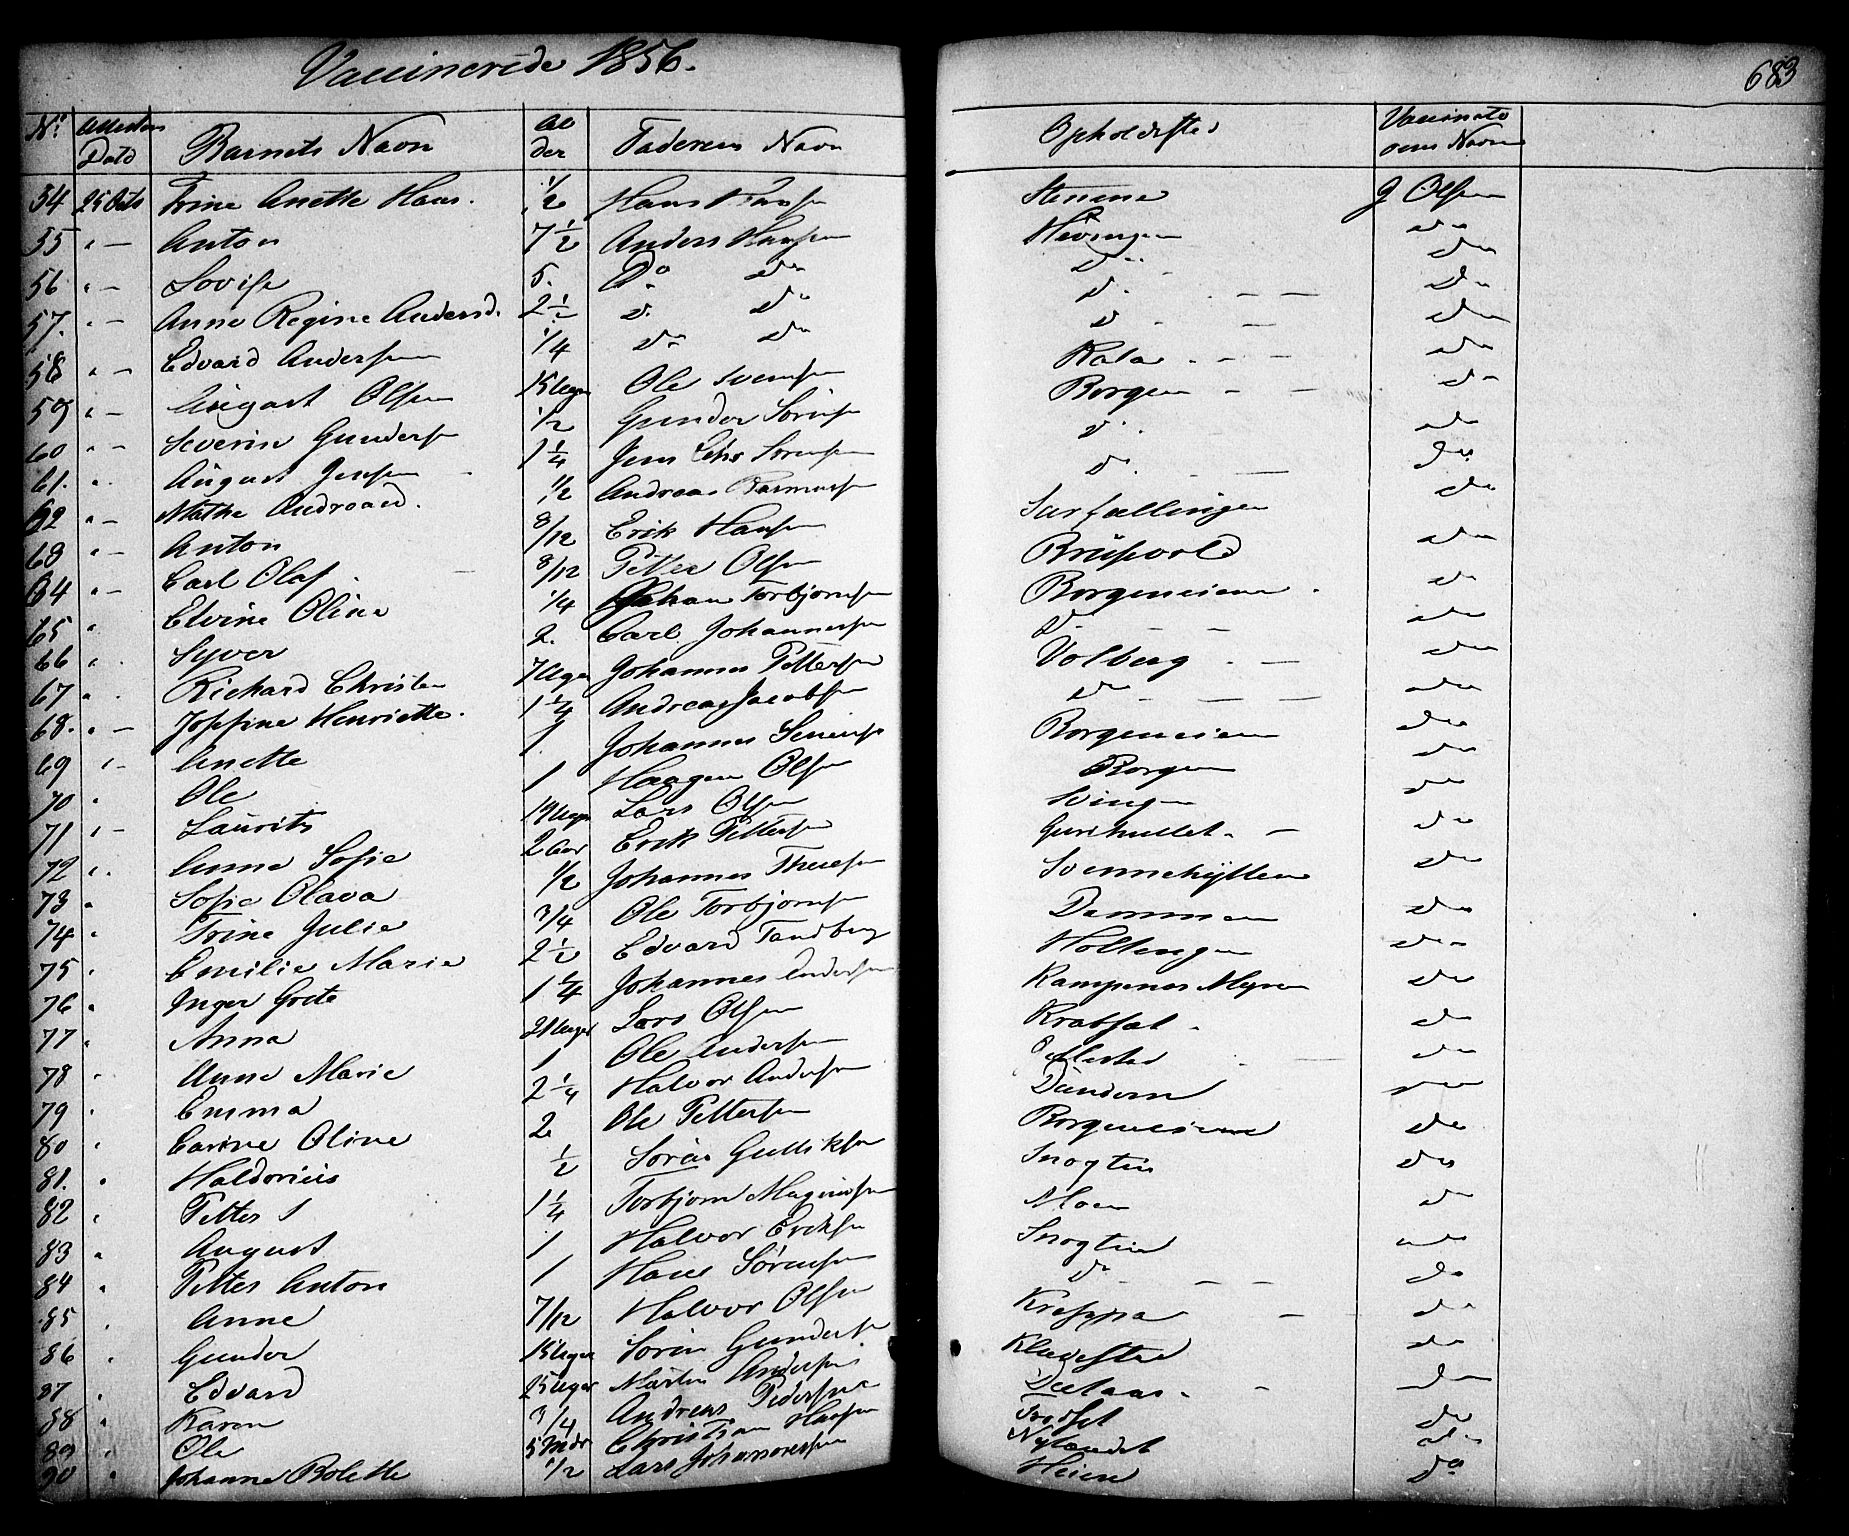 Vaccinerede 1856.
683
No. Attestens Dato Barnets Navn Alder Faderens Navn Opholdssted Vaccinateurens Navn
54 25 Octb Trine Anette Hans. 1/2 Hans Hansen Stenene J Olsen
55 " — Anton 7 1/2 Anders Hansen do
56 " — Lovise 5. Do do do do
57. " — Anne Regine Andersd. 2 1/2 d. do d. — — do
58 " — Edvard Andersen 1/4 do do d. — do
59 " — August Olsen 15 Uger Ole Svensen — — do
60 " — Severin Gundersen 1/2 Gunder Sörensen Borgen — — do
61. " August Jensen 1 1/4 Jens Sörensen d. do
62 " — Mathe Andreasd. 1/2 Andreas Rasmussen d. — — do
63 " — Anton 8/12 Erik Hansen do
64 " — Carl Olaf. 8/12 Petter Olsen do
65 " Elvine Oline 1/4 Johan Torbjornsen Borgeneiene do
66 " Syver 2. Carl Johannesen d. — — do
67 " Richard Christen 7 Uger Johannes Pettersen Volberg — do
68. " — Josefine Henriette. 1 1/4 Andreas Jacobsen do — — — do
69 " - Anette 1 Johannes Borgeneiene do
70 " Ole 1 Haagen Olsen Borgen do
71 " — Laurits 19 Uger Lars Olsen do
72 " Anne Sofie 2 Aar Erik Pettersen — do
73 " Sofie Olava 1/2 Johannes Svennehytten do
74 " Trine Julie 3/4 Ole Torbjornsen Dammen do
75 " Emilie Marie 2 1/2 Edvard Tandberg Holtengen do
76 " Inger Grete 1 1/4 Johannes Andersen Kampenes Myren do
77 " Anna 21 Uger Lars Olsen Krabsat do
78 " Anne Marie 1 Ole Andersen — do
79 " Emma 2 1/4 Halvor Andersen do
80 " Carine Oline 2 Ole Pettersen Borgeneiene do
81. " Haldorius 1/2 Sörén Gulliksen Snogtin do
82 " Petter 1 1/4 Torbjorn Magnusen Moen do
83 " August 1 Halvor Eriksen Snogtin do
84 " Petter Anton 1 Hans Sörensen do — — do
85 " Anne 7/12 Halvor Olsen — do
86 " Gunder 15 Uger Sörén Gundersen Kladestad do
87 " Edvard 25 Uger Martin Andersen — do
88 " Karen 3/4 Andreas Pedersen do
89 " Ole 5 Mdr Christian Hansen Nylandet do
90 " Johanne Bolette 1/2 Lars Johannesen Heien do